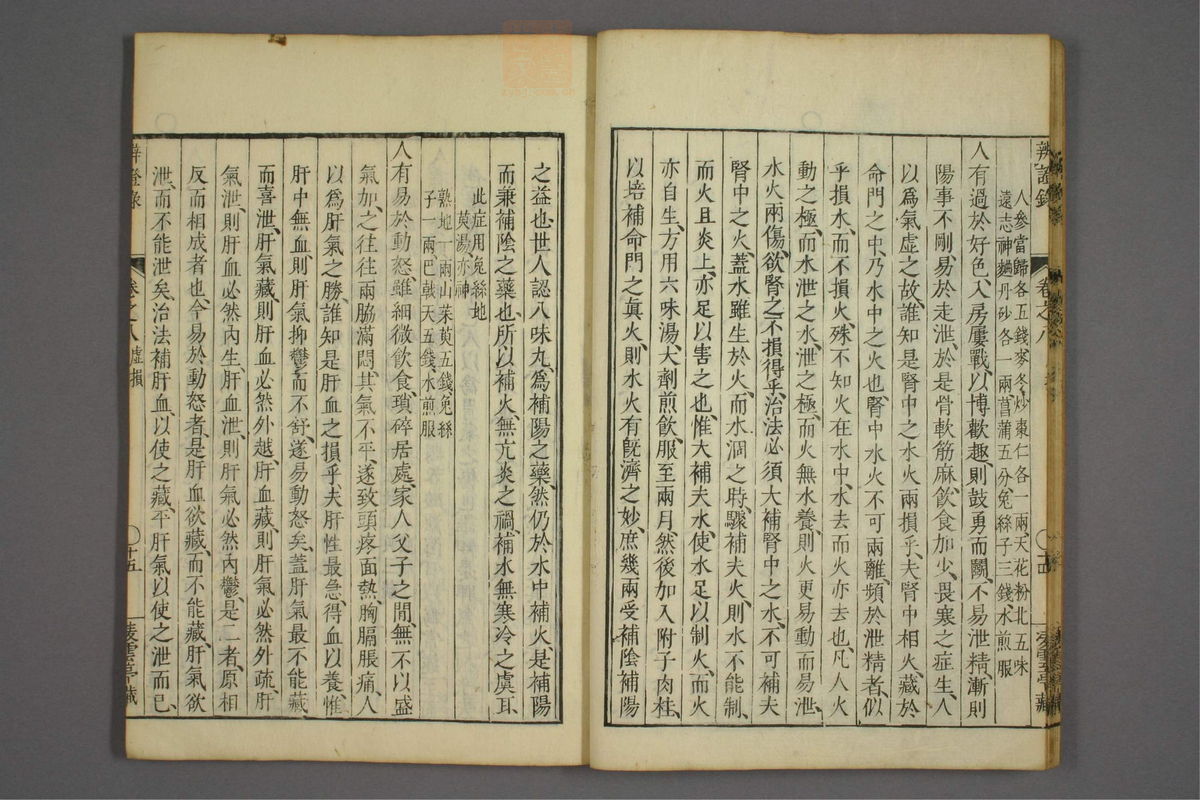 辨證錄 卷之八 十四 凌雲亭藏
人參當歸各五錢麥冬炒棗仁各一兩天花粉北五味
遠志神麯丹砂各一兩菖蒲五分兔絲子三錢水煎服
人有過於好色、入房屢戰、以博歡趣、則鼓勇而鬭、不易泄精、漸則
陽事不剛、易於走泄、於是骨軟筋麻、飲食加少、畏寒之症生、人
以爲氣虛之故、誰知是腎中之水火兩損乎、夫腎中相火藏於
命門之中、乃水中之火也、腎中水火不可兩離、頻於泄精者、似
乎損水而不損火、殊不知火在水中、水去而火亦去也、凡人火
動之極、而水泄之、水泄之極、而火無水養、則火更易動而易泄、
水火兩傷、欲腎之不損得乎、治法必須大補腎中之水、不可補夫
腎中之火、蓋水雖生於火、而水涸之時、驟補夫火、則水不能制、
而火且炎上、亦足以害之也、惟大補夫水、使水足以制火、而火
亦自生、方用六味湯、大劑煎飲、服至兩月、然後加入附子肉桂、
以培補命門之眞火、則水火有旣濟之妙、庶幾兩受補陰補陽
之益也、世人認八味丸、爲補陽之藥、然仍於水中補火、是補陽
而兼補陰之藥也、所以補火無亢炎之禍、補水無寒冷之虞耳、
此症用兔絲地
萸湯亦神
熟地一兩山茱萸五錢兔絲
子一兩巴戟天五錢水煎服
人有易於動怒、雖細微飲食、瑣碎居處、家人父子之間、無不以盛
氣加之、往往兩脇滿悶、其氣不平、遂致頭疼面熱、胸膈脹痛、人
以爲肝氣之勝、誰知是肝血之損乎、夫肝性最急、得血以養、惟
肝中無血、則肝氣抑鬱、而不舒、遂易動怒矣、蓋肝氣最不能藏、
而喜泄、肝氣藏、則肝血必然外越、肝血藏、則肝氣必然外疏、肝
氣泄、則肝血必然內生、肝血泄、則肝氣必然內鬱、是二者、原相
反而相成者也、今易於動怒者、是肝血欲藏、而不能藏、肝氣欲
泄、而不能泄矣、治法補肝血、以使之藏、平肝氣以使之泄而已、
辨證錄 卷之八 虛損 十五 凌雲亭藏